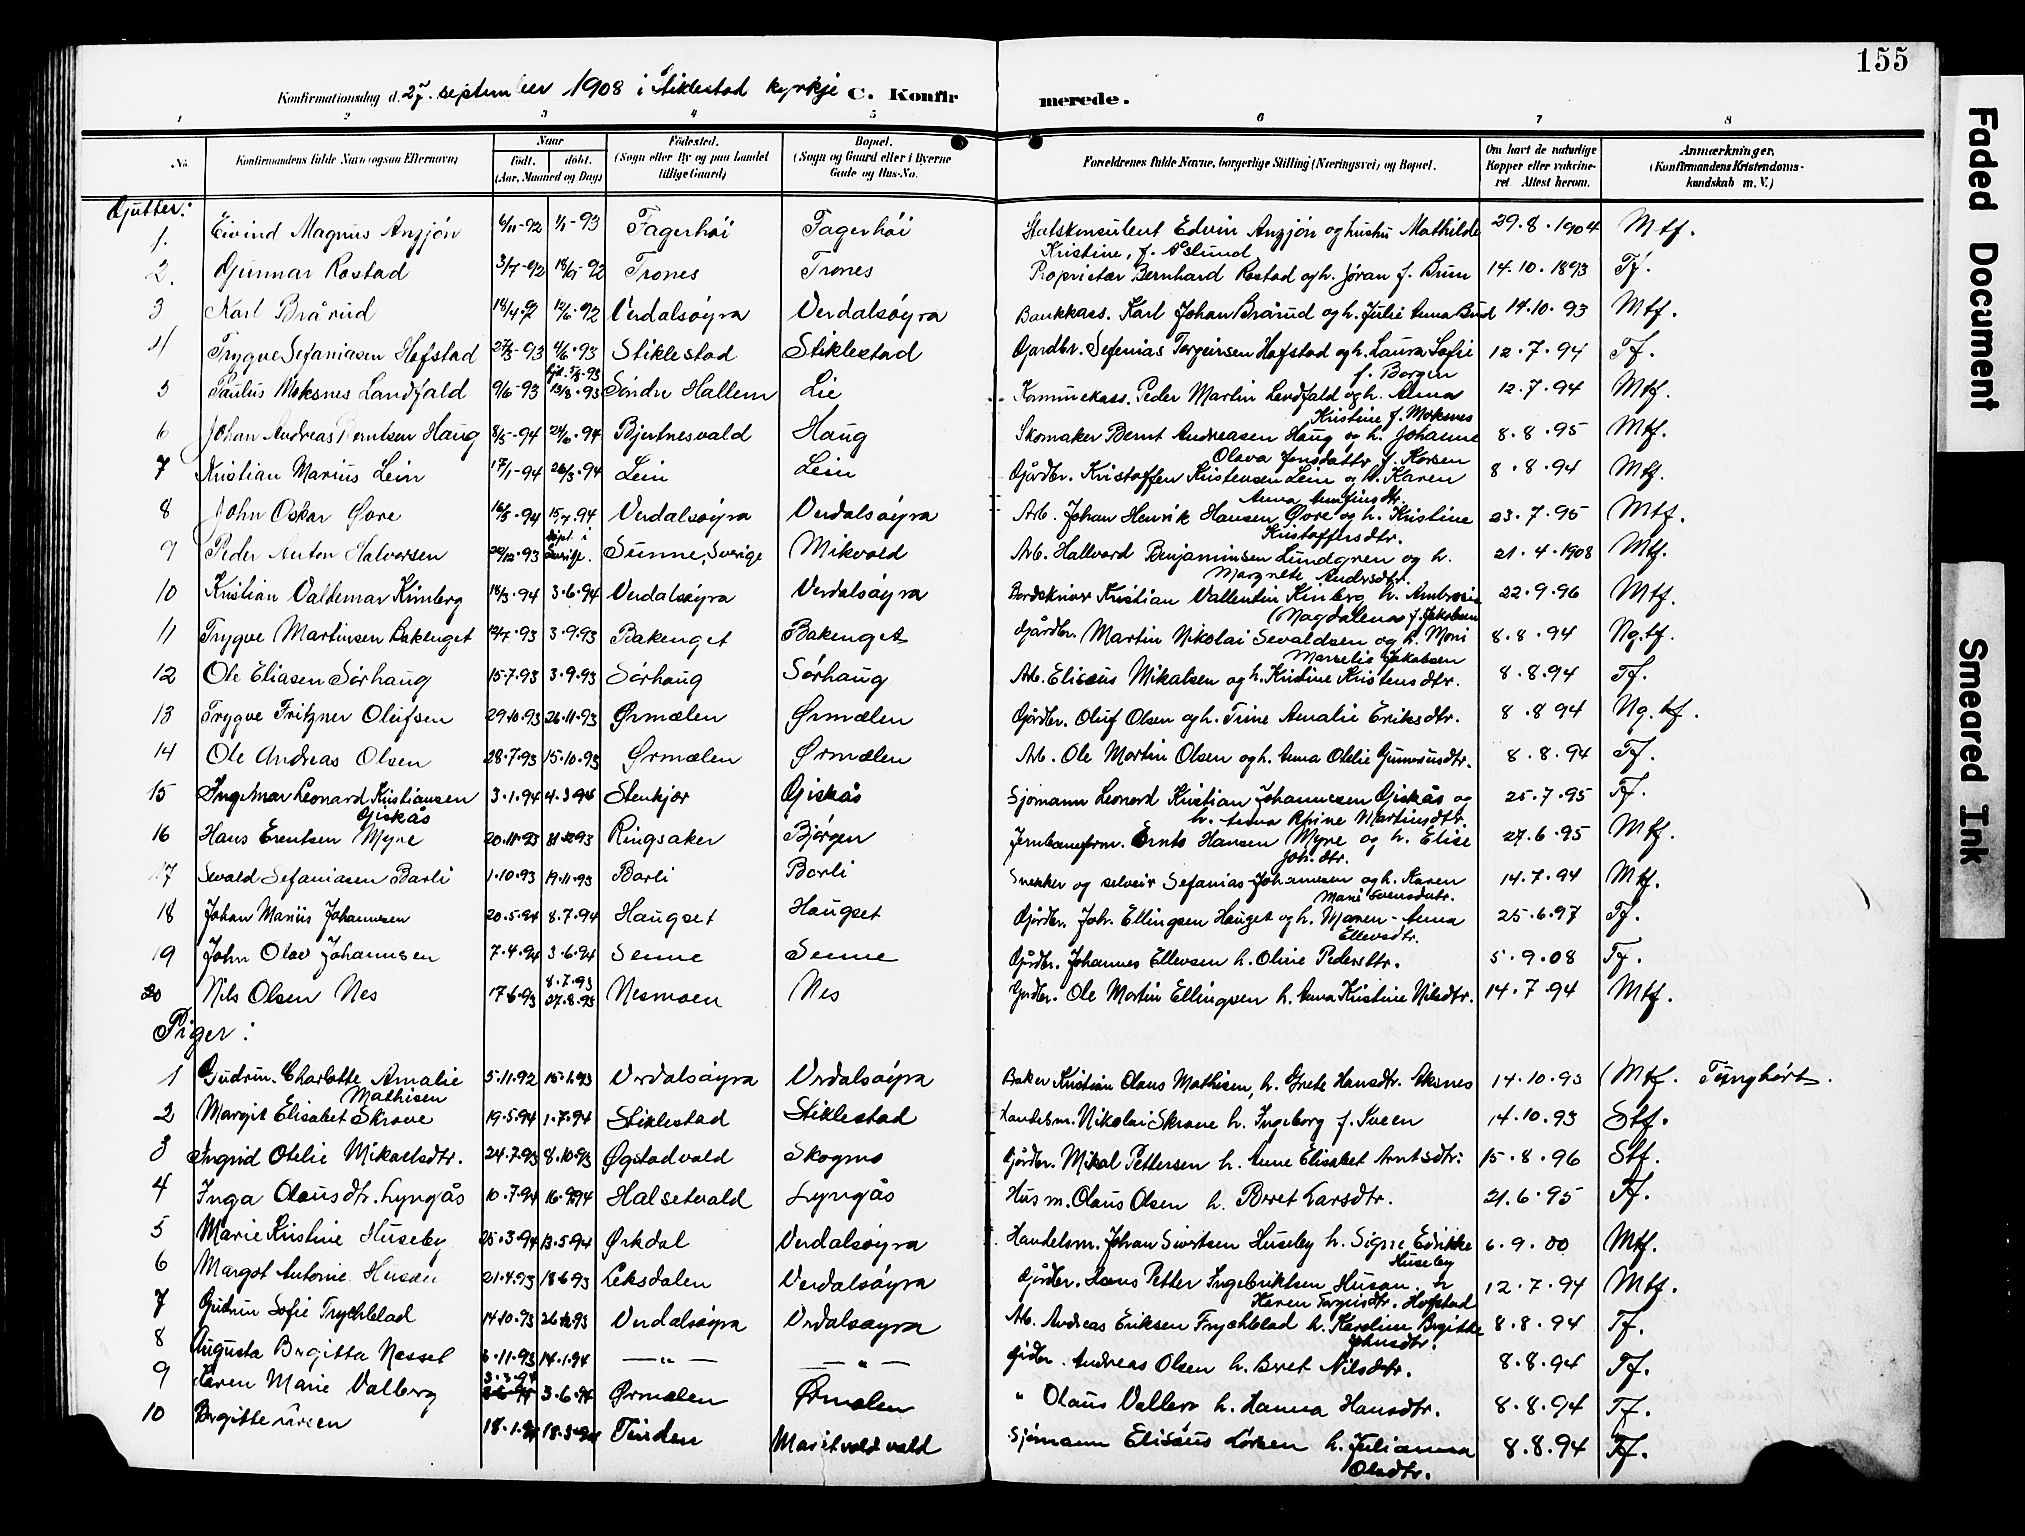 155
Konfirmationsdag d. 27. september 1908 i Stiklestad kyrkje C. Konfirmerede.
1 2 3 4 5 6 7 8
No. Konfirmandens fulde Navn (ogsaa Efternavn) Naar født. døbt. (Aar, Maaned og Dag) Födested. (Sogn eller By og paa Landet tillige Gaard) Bopæl. (Sogn og Gaard eller i Byerne Gade og Hus-No. Forældrenes fulde Navne, borgerlige Stilling (Næringsvei) og Bopæl. Om havt de naturlige Kopper eller vakcineret Attest herom. Anmærkninger, (Konfirmandens Kristendomskundskab m. V.)
Gutter:
1. Eivind Magnus Anzjön 6/11-92 1/1-93 Fagerhöi Fagerhöi Statskonsulent Edvin Anzjön og hustru Mathilde 29.8.1904 Mtf.
Kristine, f. Åslund
2. Gunnar Rostad 3/7-92 Trones Trones Proprietær Bernhard Rostad og h. Jöran f. Brun 14.10.1893 Tf.
3 Karl Brårud 18/4-92 12/6-92 Verdalsöyra Verdalsöyra Bankkass. Karl Johan Brårud og h. Julie Anna 14.10.93 Mtf.
4 Trygve Sefaniasen Hofstad 27/3-93 4/6-93 Stiklestad Stiklestad Gardbr. Sefanias Torgeirsen Hofstad og h. Laura Sofie 12.7.94 Tf.
f. Borgen
5 Paulus Moksnes Landfald 9/6-93 13/8-93 Söndre Hallem Lie Kommunekass. Peder Martin Landfald og h. Anna 12.7.94 Mtf.
Kristine f. Moksnes
6 Johan Andreas Berntsen Haug 8/5-94 24/6-94 Bjertnesvald Haug Skomaker Bernt Andreasen Haug og h. Johanne 8.8.95 Mtf.
Olava Jonsdattr f. Karsen
7 Kristian Marius Lein 17/1-94 26/3-94 Lein Lein Gårdbr. Kristoffer Kristensen Lein og h. Karen 8.8.94 Mtf.
Anna
8 John Oskar Övre 16/5-94 15/7-94 Verdalsöyra Verdalsöyra Arb. Johan Henrik Hansen Övre og h. Kristine 23.7.95 Mtf.
Kristoffersdtr.
9 Peder Anton Halvorsen 20/12-93 döpt i Sverige. Sunne, Sverige Mikvold Arb. Hallvard Benjaminsen Lundgren og h. 21.4.1908 Mtf.
Margrete Andrsdtr.
10 Kristian Valdemar Kimberg 18/3-94 3.6.94 Verdalsöyra Verdalsöyra Kristian Vallentin Kinberg h. Ambrosia 22.9.96 Mtf.
Magdalena f. Jakobsen
11 Trygve Martinsen Bakenget 12/7-93 3.9.93 Bakenget Bakenget Gårdbr. Martin Nikolai Sevaldsen og h. 8.8.94 Ng.tf.
Marselie Jakobsen
12 Ole Eliasen Sörhaug 15.7.93 3.9.93 Sörhaug Sörhaug Arb. Eliseus Mikalsen og h. Kristine Kristensdtr. 8.8.94 Tf.
13 Trygve Fritzner Olufsen 29.10.93 26.11.93 Örmælen Örmælen Gårdbr. Oluf Olsen og h. Trine Amalie Eriksdtr. 8.8.94 Ng.tf.
14 Ole Andreas Olsen 28.7.93 15.10.93 Örmælen Örmælen Arb. Ole Martin Olsen og h. Anna Otelie Gunnerusdtr. 8.8.94 Tf.
15 Ingemar Leonard Kristiansen 3.1.94 4.3.94 Stenkjær Giskås Sjömann Leonard Kristian Johannesen Giskås og 25.7.95 Tf.
Giskås h. Anna Martinsdtr.
16 Hans Erentsen Myre 20.11.93 31.12.93 Ringsaker Bjørgen Jernbaneform. Ernts Hansen Myre og h. Elise 27.6.95 Mtf.
Joh.dtr.
17 Sevald Sefaniasen Barli 1.10.93 19.11.93 Borli Borli Snekker og selveir Sefanias Johannesen og h. Karen 14.7.94 Mtf.
Marie Svensdatr.
18 Johan Mariüs Johannesen 20.5.94 8.7.94 Haugset Haugset Gårdbr. Joh. Ellingsen Hauget og h. Maren-Anna 25.6.97 Tf.
Ellevsdtr.
19 John Olav Johannesen 7.4.94 3.6.94 Senne Senne Gårdbr. Johannes Ellevsen h. Oline Pedersdtr. 5.9.08 Tf.
20 Nils Olsen Nes 17.6.93 8.7.93 27.8.93 Nesmoen Nes Gårdbr. Ole Martin Ellingsen h. Anna Kristine Nilsdtr. 14.7.94 Mtf.
Piger:
1 Gudrun Charlotte Amalie 5.11.92 15.1.93 Verdalsöyra Verdalsöyra Baker Kristian Olaus Mathisen, h. Grete Hansdtr. Aksnes 14.10.93 Mtf. Tunghört.
Mathisen
2 Margit Elisabet Skrove 19.5.94 1.7.94 Stiklestad Stiklestad Handelsm. Nikolai Skrove h. Ingeborg f. Sveen 14.10.93 Stf.
3 Ingrid Otelie Mikaelsdtr. 24.7.93 8.10.93 Øgstadvald Skogmo Gårdbr. Mikal Pettersen h. Anne Elisabet Arntsdtr: 15.8.96 Stf.
4 Inga Olausdtr. Lyngås 10.7.94 16.9.94 Halsetvald Lyngås Husm. Olaus Olsen h. Beret Larsdtr. 21.6.95 Tf.
5 Marie Kristine Huseby 25.3.94 13.5.94 Örkdal Verdalsöyra Handelsm. Johan Sivertsen Huseby h. Signe Edrikke 6.9.00 Mtf.
Huseby
6 Margot Antonie Husan 21.4.93 18.6.93 Leksdalen Verdalsöyra Gårdbr. Hans Petter Ingebriktsen Husan h 12.7.94 Mtf.
Karen Torgeisdtr. Hofstad
7 Gudrun Sofie Frychblad 14.10.93 26.12.93 Verdalsöyra Verdalsøyra Arb. Andreas Eriksen Frychblad h. Karoline Brgitte 8.8.94 Tf.
Johnsdtr.
8 Augusta Brgitta Nessel 3.11.93 14.1.94 — " — — " — Gårdbr. Andreas Olsen h. Beret Nilsdtr. 8.8.94 Tf.
9 Karen Marie Valberg 3.3.94 3.6.94 Örmælen Örmælen " Olaus h. Hanna Hansdtr. 8.8.94 Tf.
10 Brgitte 18.1.94 18.3.94 Tinden Maritvold vald Sjömann Eliseus Lörsen h. Julianna 8.8.94 Tf.
Olsdtr.
Faded Document
Smeared Ink